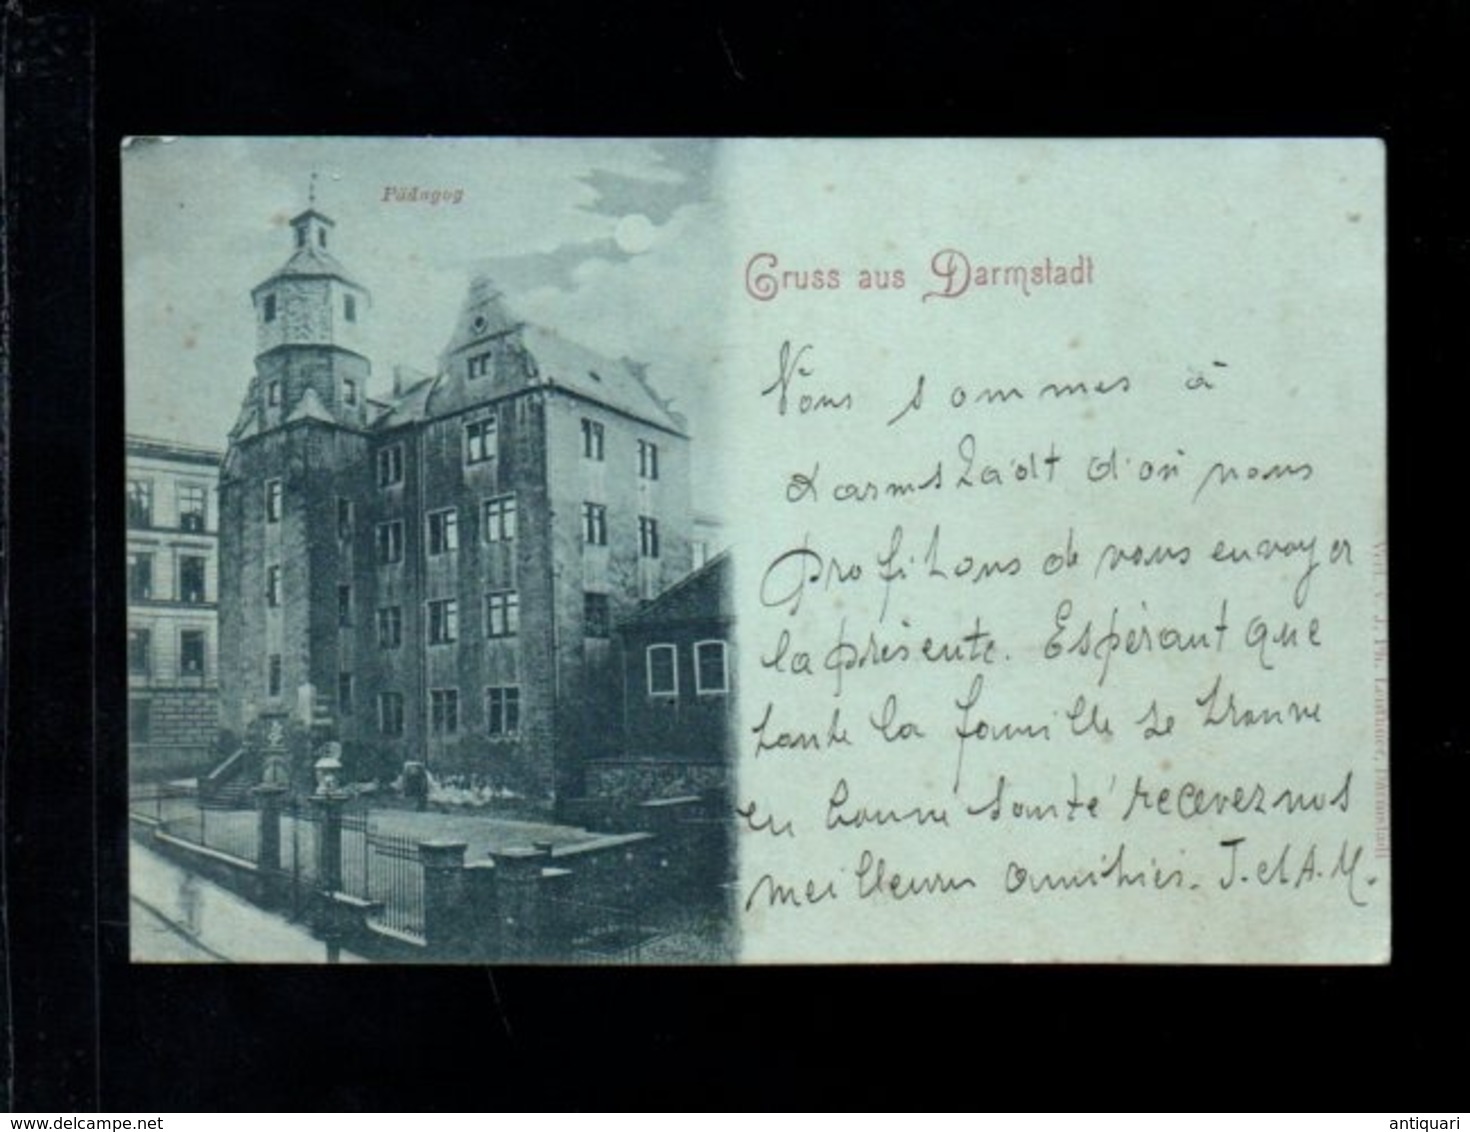 Pädagog
Gruss aus Darmstadt
Nous sommes à
darmstadt d'où nous
profitons de vous envoyer
la présente. Espérant que
toute la famille se trouve
en bonne santé recevez nos
meilleures amitiés. J. et A. M.
delcampe.net
antiquari